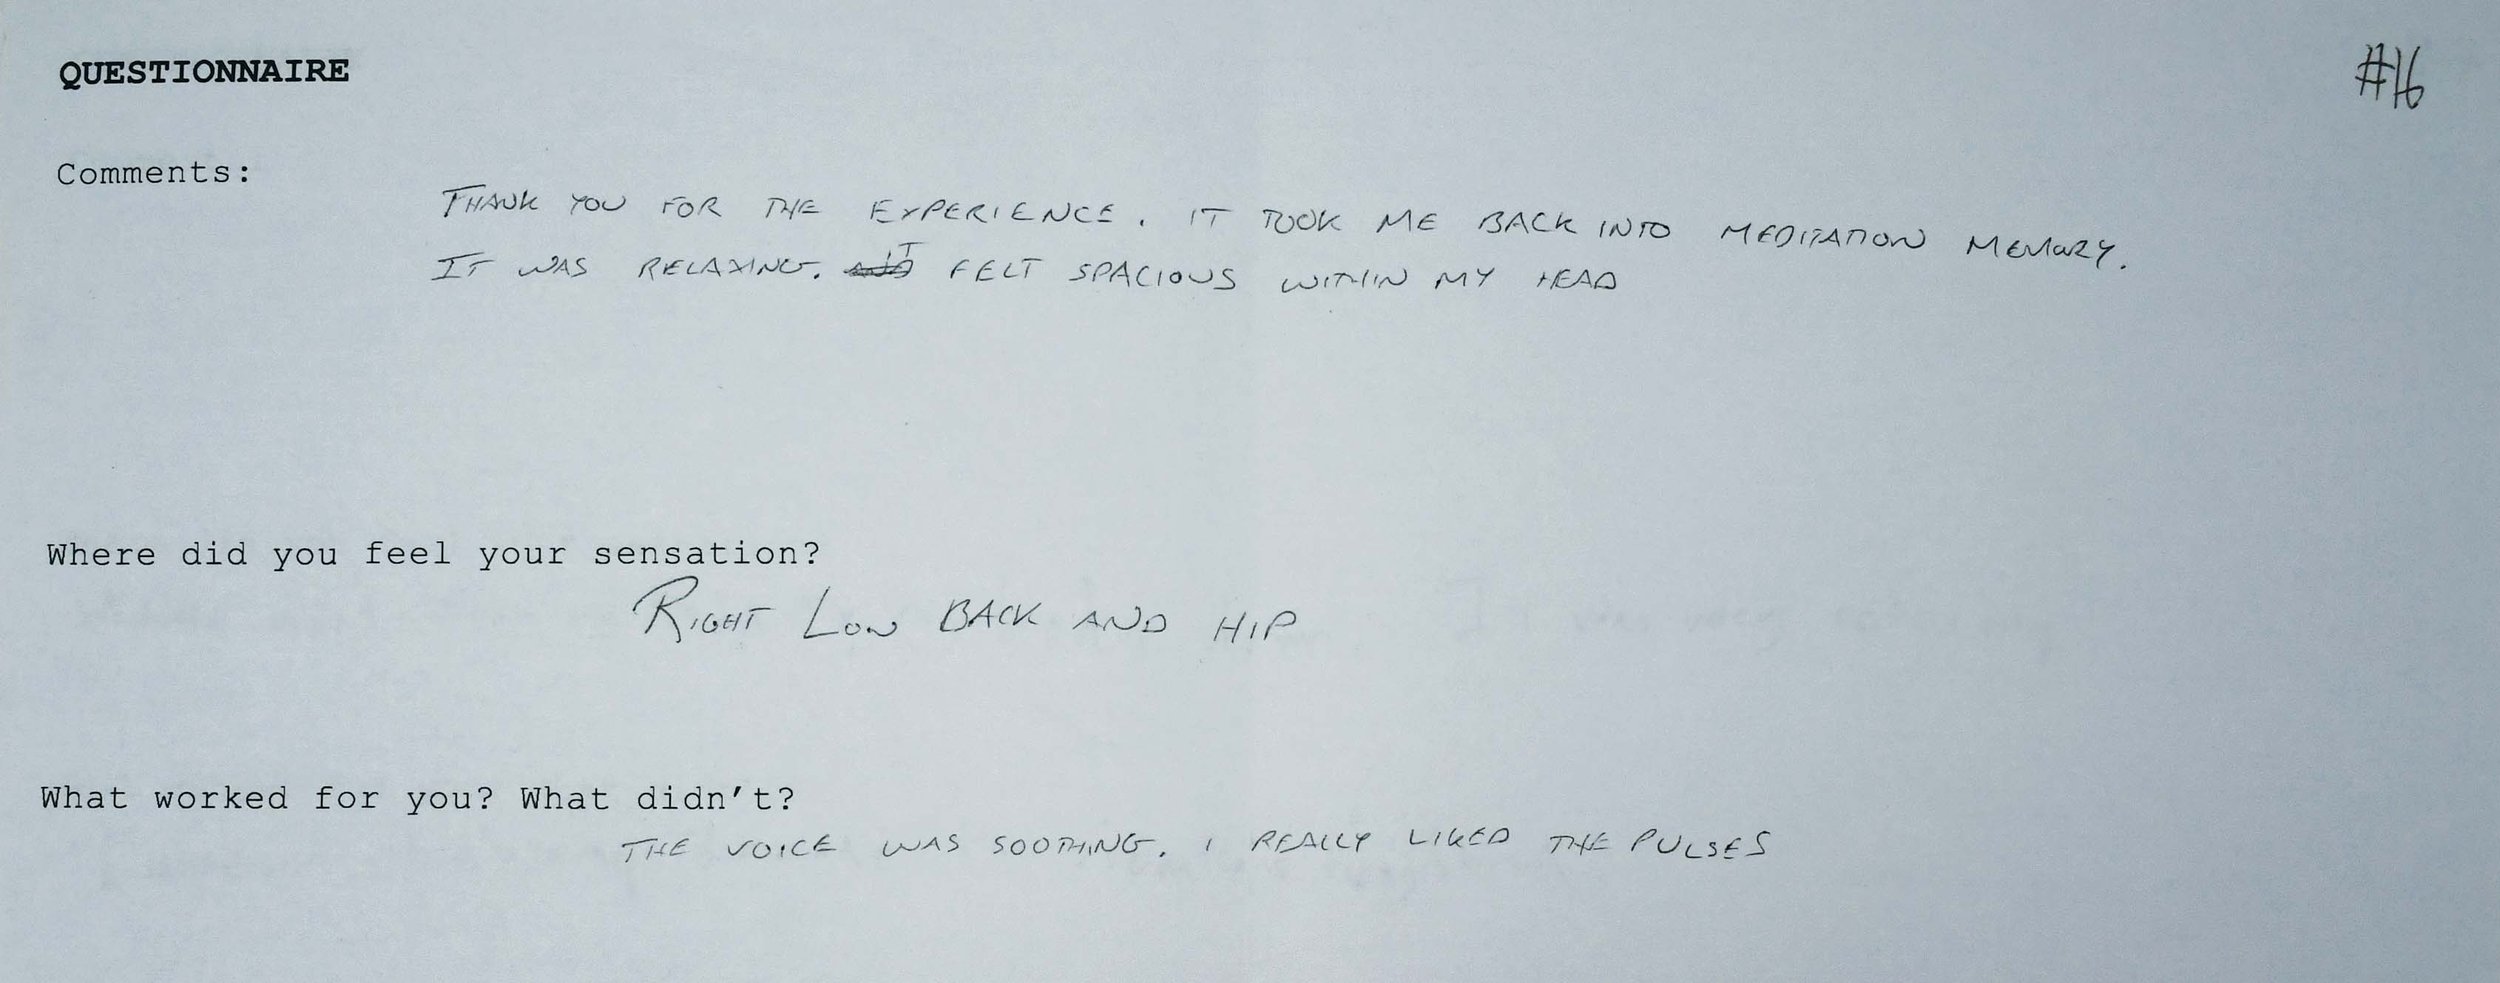 QUESTIONNAIRE
#16
Comments:
THANK YOU FOR THE EXPERIENCE. IT TOOK ME BACK INTO MEDITATION MEMORY.
IT WAS RELAXING. I FELT SPACIOUS WITHIN MY HEAD
Where did you feel your sensation?
RIGHT LOW BACK AND HIP
What worked for you? What didn't?
THE VOICE WAS SOOTHING. I REALLY LIKED THE PULSES